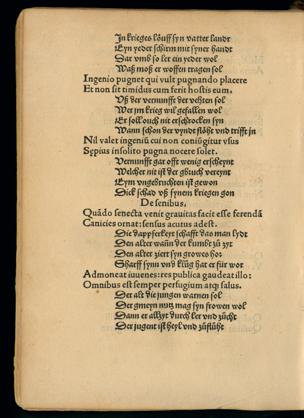 In krieges löuff syn vatter landt
Eyn yeder schirm mit syner handt
Dar vmb so ler ein yeder wol
Waß moß er woffen tragen sol
Ingenio pugnet qui vult pugnando placere
Et non sit timidus cum ferit hostis eum.
Vß der vernunfft der vehten sol
Wer jm krieg wil gefallen wol
Er soll ouch nit erschrocken syn
Wann schon der vyndt flöhe vnd trifft jn
Nil valet ingeniū cui non coniūgitur vsus
Sępius insolito pugna nocere solet.
Vernunfft gar offt wenig erscheynt
Welcher nit ist der gbruch vereynt
Eym vngebruchten ist gewon
Dick schad vß synem kriegen gon
De senibus.
Quādo senecta venit grauitas facit esse ferendā
Canicies ornat: sensus acutus adest.
Die dapfferkeyt schafft das man lydt
Den alter wann der kumbt zů zyt
Den alter ziert syn growes hor
Scharff synn vnd klůg hat er für wor
Admoneat iuuenes: res publica gaudeat illo:
Omnibus est semper perfugium atqʒ salus.
Der alt die jungen warnen sol
Der gmeyn nutz mag syn frowen wol
Dann er allzyt durch ler vnd zücht
Der jugent ist heyl vnd zůflůcht